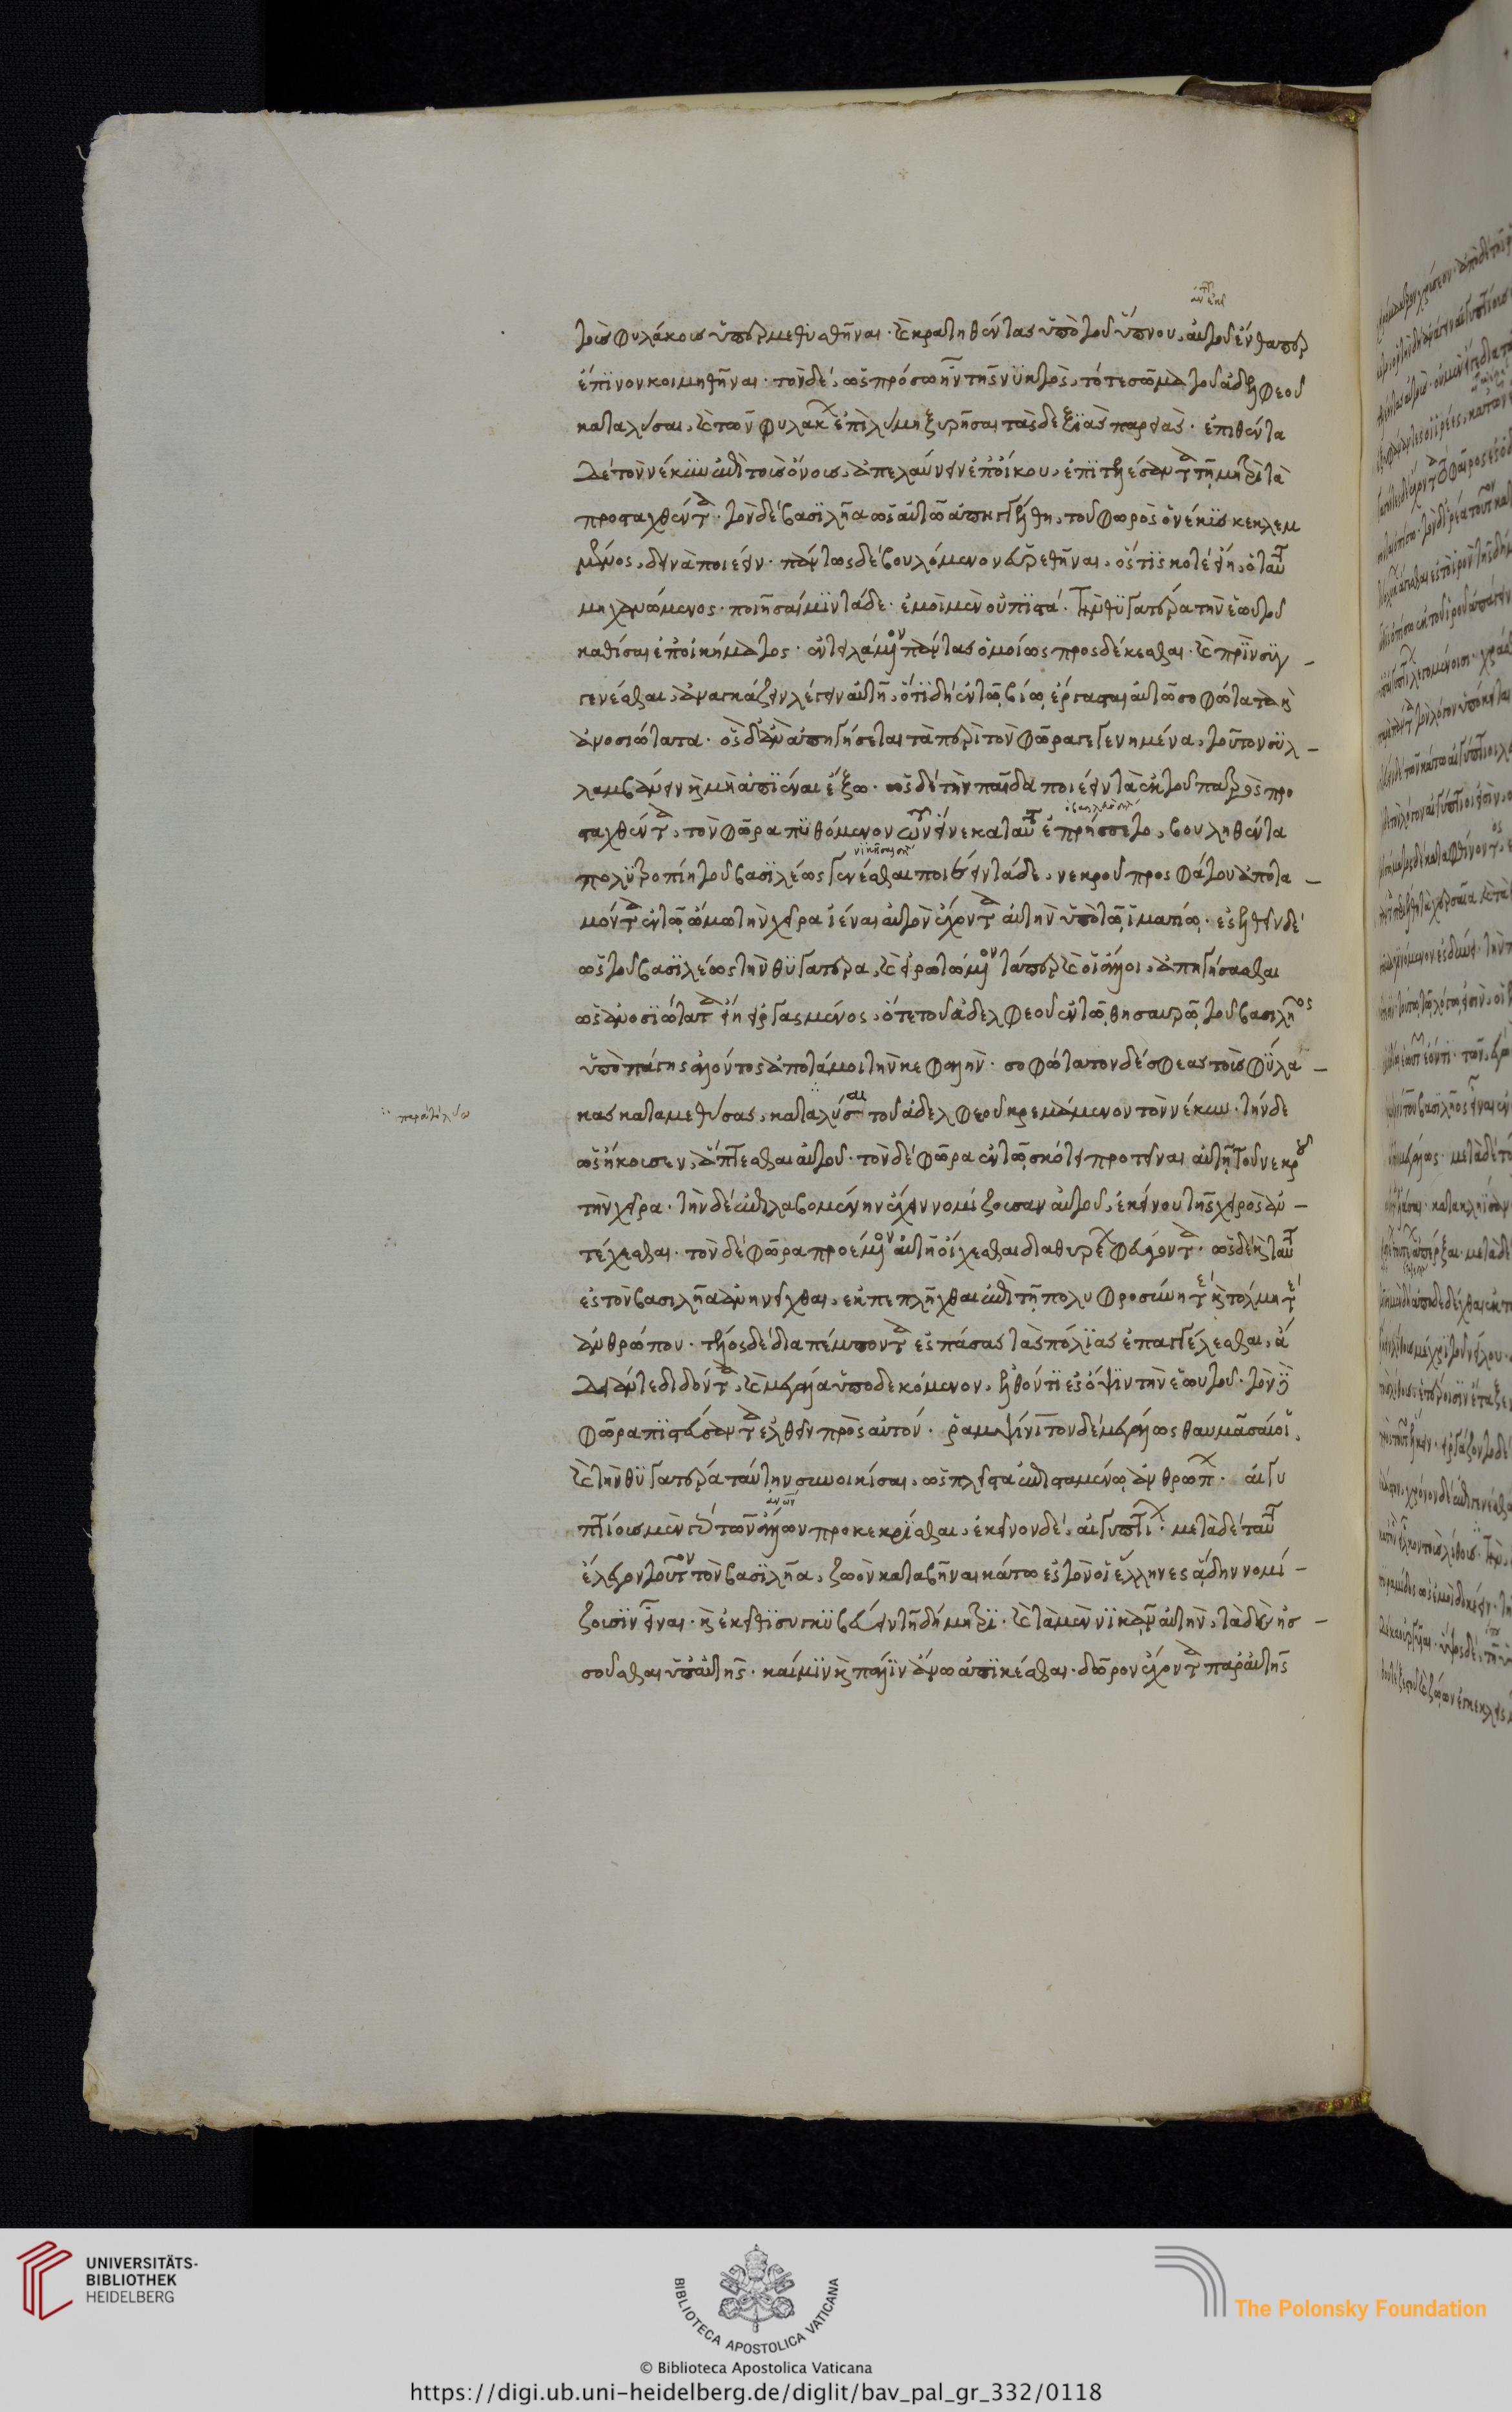 τοὺς φυλάκους ὑπερμεθυσθῆναι· καὶ κρατηθέντας ὑπὸ τοῦ ὕπνου, αὐτοῦ ἔνθαπερ
ἔπϊνον κοιμηθῆναι· τὸν δὲ, ὡς πρόσω ἦν τῆς νϋκτὸς, τό τε σῶμα τοῦ ἀδελφεοῦ
καταλῦσαι, καὶ τῶν φυλάκων ἐπὶ λύμη ξυρῆσαι τὰς δεξϊὰς παρηίας· ἐπιθέντα
δὲ τὸν νέκυν ἐπὶ τοὺς ὄνους, ἀπελαύνειν ἐπ' οἴκου, ἐπϊτελέσαντα τῇ μητρὶ τὰ
προσταχθέντα· τὸν δὲ βασϊλῆα ὡς αὐτῶ ἀπηγγέλθη, τοῦ φωρὸς ὁ νέκϋς κεκλεμ
μένος, δεινὰ ποιέειν· πάντως δὲ βουλόμενον εὑρεθῆναι, ὅστϊς κοτὲ εἴη, ὁ ταῦτα
μηχανώμενος· ποιῆσαί μϊν τάδε· ἐμοὶ μὲν οὐ πϊστά· τὴν θϋγατέρα τὴν ἑωυτοῦ
κατίσαι ἐπ' οἰκήματος· ἐντειλάμενον πάντας ὁμοίως προσδέκεσθαι· καὶ πρὶν συγ –
γενέσθαι, ἀναγκάζειν λέγειν αὐτῇ, ὅτϊ δὴ ἐν τῷ βίῳ ἔργασται αὐτῶ σοφώτατα καὶ
ἀνοσιώτατα· ὃς δ' ἂν ἀπηγήσεται τὰ περὶ τὸν φῶρα γεγενημένα, τοῦτον σϋλ –
λαμβάνειν καὶ μὴ ἀπϊέναι ἔξω· ὡς δὲ τὴν παῖδα ποιέειν τὰ ἐκ τοῦ πατρὸς προ
σταχθέντα, τὸν φῶρα πϋθόμενον τῶν εἵνεκα ταῦτα ἐπρήσσετο, βουληθέντα
πολϋτροπίη τοῦ βασϊλέως γενέσθαι ποιεειν τάδε, νεκροῦ προσφάτου ἀποτα –
μόντα ἐν τῷ ὤμω τὴν χεῖρα ἰέναι αὐτὸν ἔχοντα αὐτὴν ὑπὸ τῷ ἱματίῳ· ἐσελθεῖν δὲ
ὡς τοῦ βασϊλέως τὴν θϋγατέρα, καὶ εἰρωτώμενον τάπερ καὶ οἱ ἄλλοι, ἀπηγήσασθαι
ὡς ἀνοσϊώτατα εἴη εἰργασμένος, ὅτε τοῦ ἀδελφεοῦ ἐν τῷ θησαυρῷ τοῦ βασιλῆος
ὑπὸ πάγης ἁλόντος ἀποτάμοι τὴν κεφαλήν· σοφώτατον δέ σφεας τοὺς φϋλα –
κας καταμεθύσας, καταλύσαι τοῦ ἀδελφεοῦ κρεμάμενον τὸν νέκυν· τὴν δὲ
ὡς ἤκουσεν, ἅπτεσθαι αὐτοῦ· τὸν δὲ φῶρα ἐν τῷ σκότει προτεῖναι αὐτῇ τοῦ νεκροῦ
τὴν χεῖρα· τὴν δὲ ἐπιλαβομένην ἔχειν νομίζουσαν αὐτοῦ, ἐκείνου τῆς χειρὸς ἀν –
τέχεσθαι· τὸν δὲ φῶρα προέμενον αὐτῇ οἴχεσθαι διὰ θυρέων φεύγοντα· ὡς δὲ καὶ ταῦτα
ἐς τὸν βασιλῆα ἀνηνεῖχθαι, ἐκπεπλῆχθαι ἐπὶ τῇ πολυφροσύνη τε καὶ τόλμη τε
ἀνθρώπου· τέλος δὲ διαπέμποντα ἐς πάσας τὰς πόλϊας ἐπαγγέλεσθαι, ἀ
δείαν τε διδόντα, καὶ μεγάλα ὑποδεκόμενον, ἐλθόντϊ ἐς ὄψϊν τὴν ἑωυτοῦ· τὸν δὲ
φῶρα πϊστεύσαντα ἐλθεῖν πρὸς αὐτόν· ῥαμψίνιτον δὲ μεγάλως θαυμᾶσαί οἱ,
καὶ τὴν θϋγατέρα ταύτην συνοικίσαι, ὡς πλεῖστα ἐπισταμένῳ ἀνθρώπων· αἰγυ
πτίους μὲν γὰρ τῶν ἄλλων προκεκρίσθαι, ἐκεῖνον δὲ, αἰγυπτίων· μετὰ δὲ ταῦτα
ἔλεγον τοῦτον τὸν βασϊλῆα, ζωὸν καταβῆναι κάτω ἐς τὸν οἱ ἕλληνες ἅδην νομί –
ζουσϊν εἶναι· καὶ ἐκεῖθι συγκϋβεύειν τῇ δήμητρϊ· καὶ τὰ μὲν νϊκᾶν αὐτὴν, τὰ δὲ ἡσ –
σοῦσθαι ὑπ' αὐτῆς· καί μϊν καὶ πάλϊν ἄνω ἀπϊκέσθαι· δῶρον ἔχοντα παρ' αὐτῆς
UNIVERSITÄTS-
BIBLIOTHEK
HEIDELBERG
BIBLIOTECA APOSTOLICA VATICANA
The Polonsky Foundation
© Biblioteca Apostolica Vaticana
https://digi.ub.uni-heidelberg.de/diglit/bav_pal_gr_332/0118